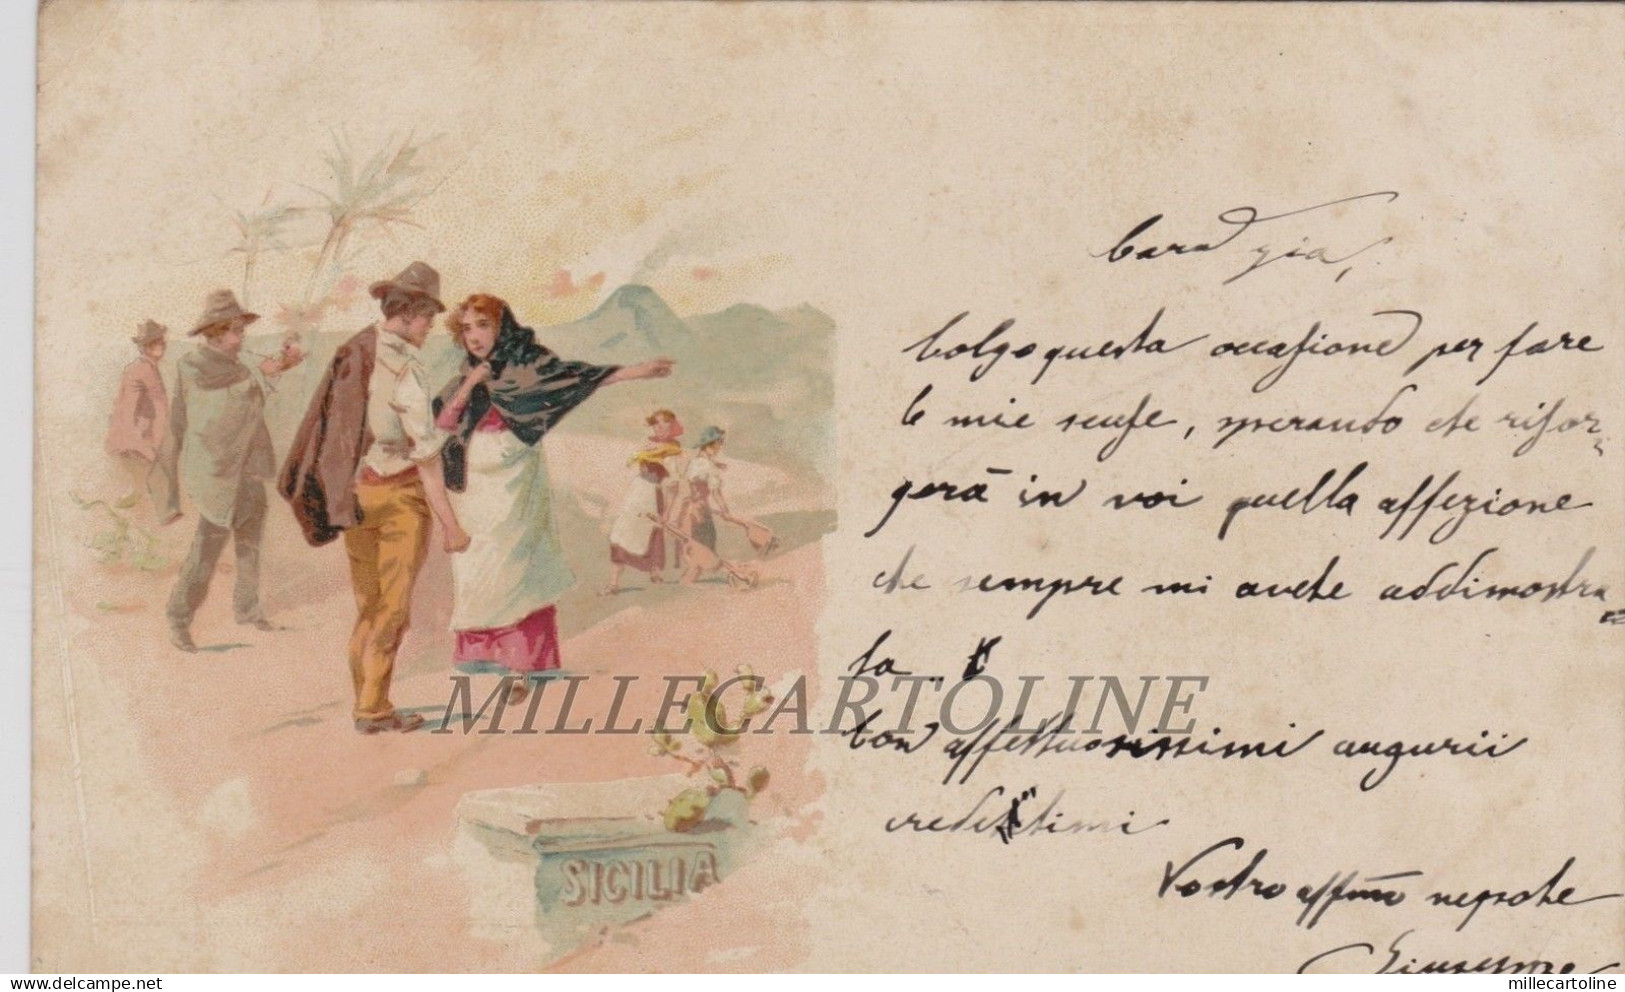 Cara zia,
Colgo questa occasione per fare
le mie scuse, sperando che risor=
gerà in voi quella affezione
che sempre mi avete addimostra=
ta..
Con affettuosissimi augurii
credetimi
Vostro affmo nepote
Giuseppe
SICILIA
MILLECARTOLINE
delcampe.net
millecartoline